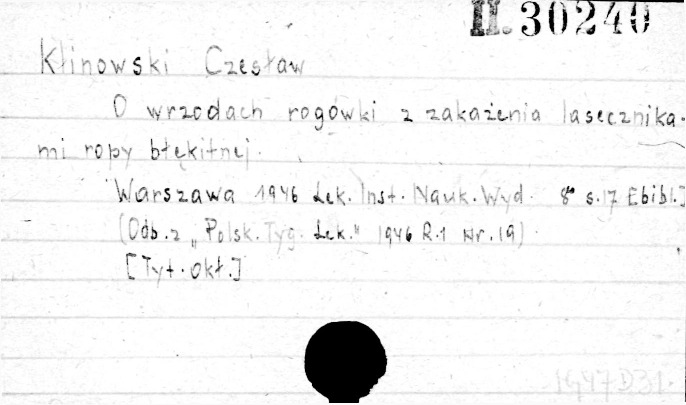 II. 30240
Klinowski Czesław
O wrzodach rogówki z zakażenia lasecznika-
mi ropy błękitnej.
Warszawa 1946 Lek. Inst. Nauk. Wyd. 8° s. 17 Ebibl.]
(Odb. z „Polsk. Tyg. Lek." 1946 R.1 Nr. 19)
[Tyt. okł.]
1947 D 31.